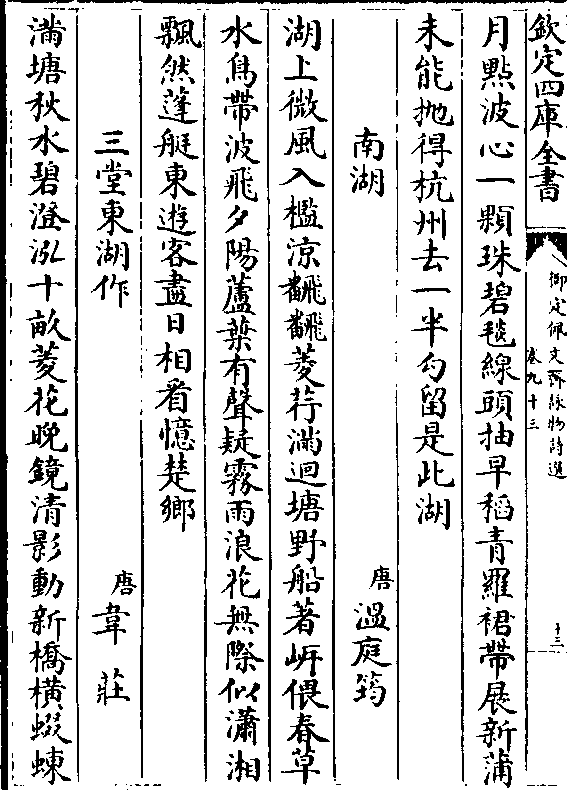 欽定四庫全書
御定佩文齋詠物詩選
卷九十三
十三
月點波心一顆珠碧毯線頭抽早稻青羅裙帶展新蒲
未能抛得杭州去一半勾留是此湖
南湖
唐 溫庭筠
湖上微風入檻涼飜飜菱荇滿迴塘野船著岍偎春草
水鳥帶波飛夕陽蘆葉有聲疑霧雨浪花無際似瀟湘
飄然蓬艇東遊客盡日相看憶楚鄉
三堂東湖作
唐 韋莊
滿塘秋水碧澄泓十畝菱花晚鏡清影動新橋橫螮蝀